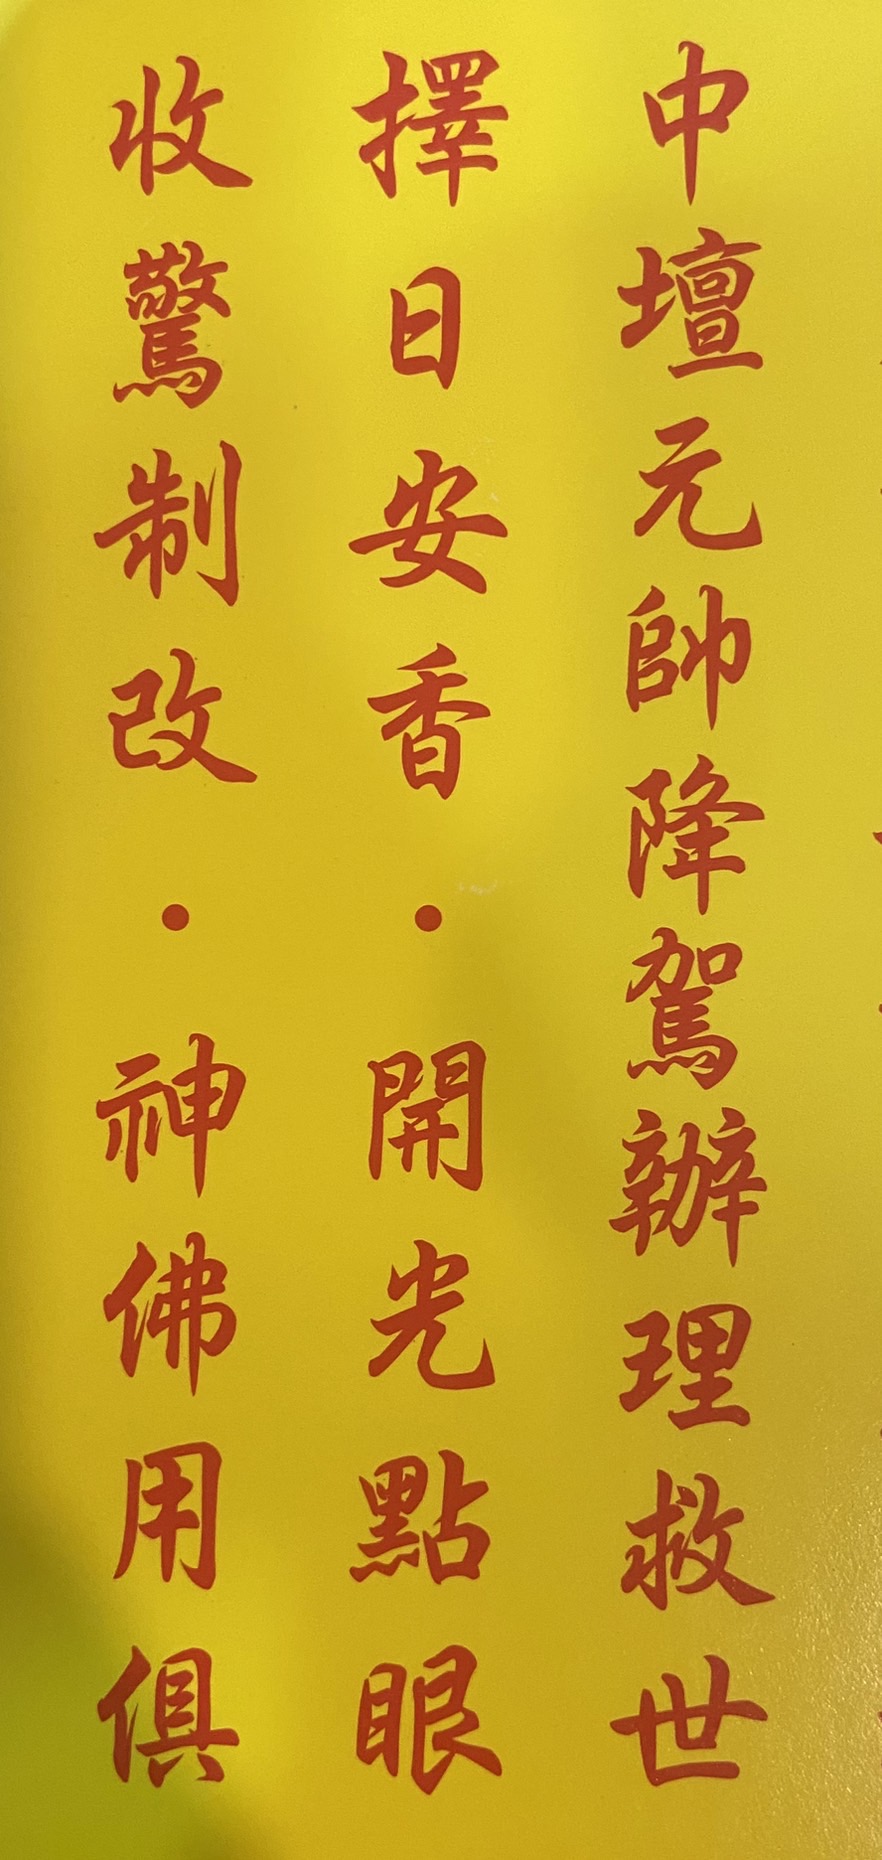 中壇元帥降駕辦理救世
擇日安香•開光點眼
收驚制改•神佛用俱